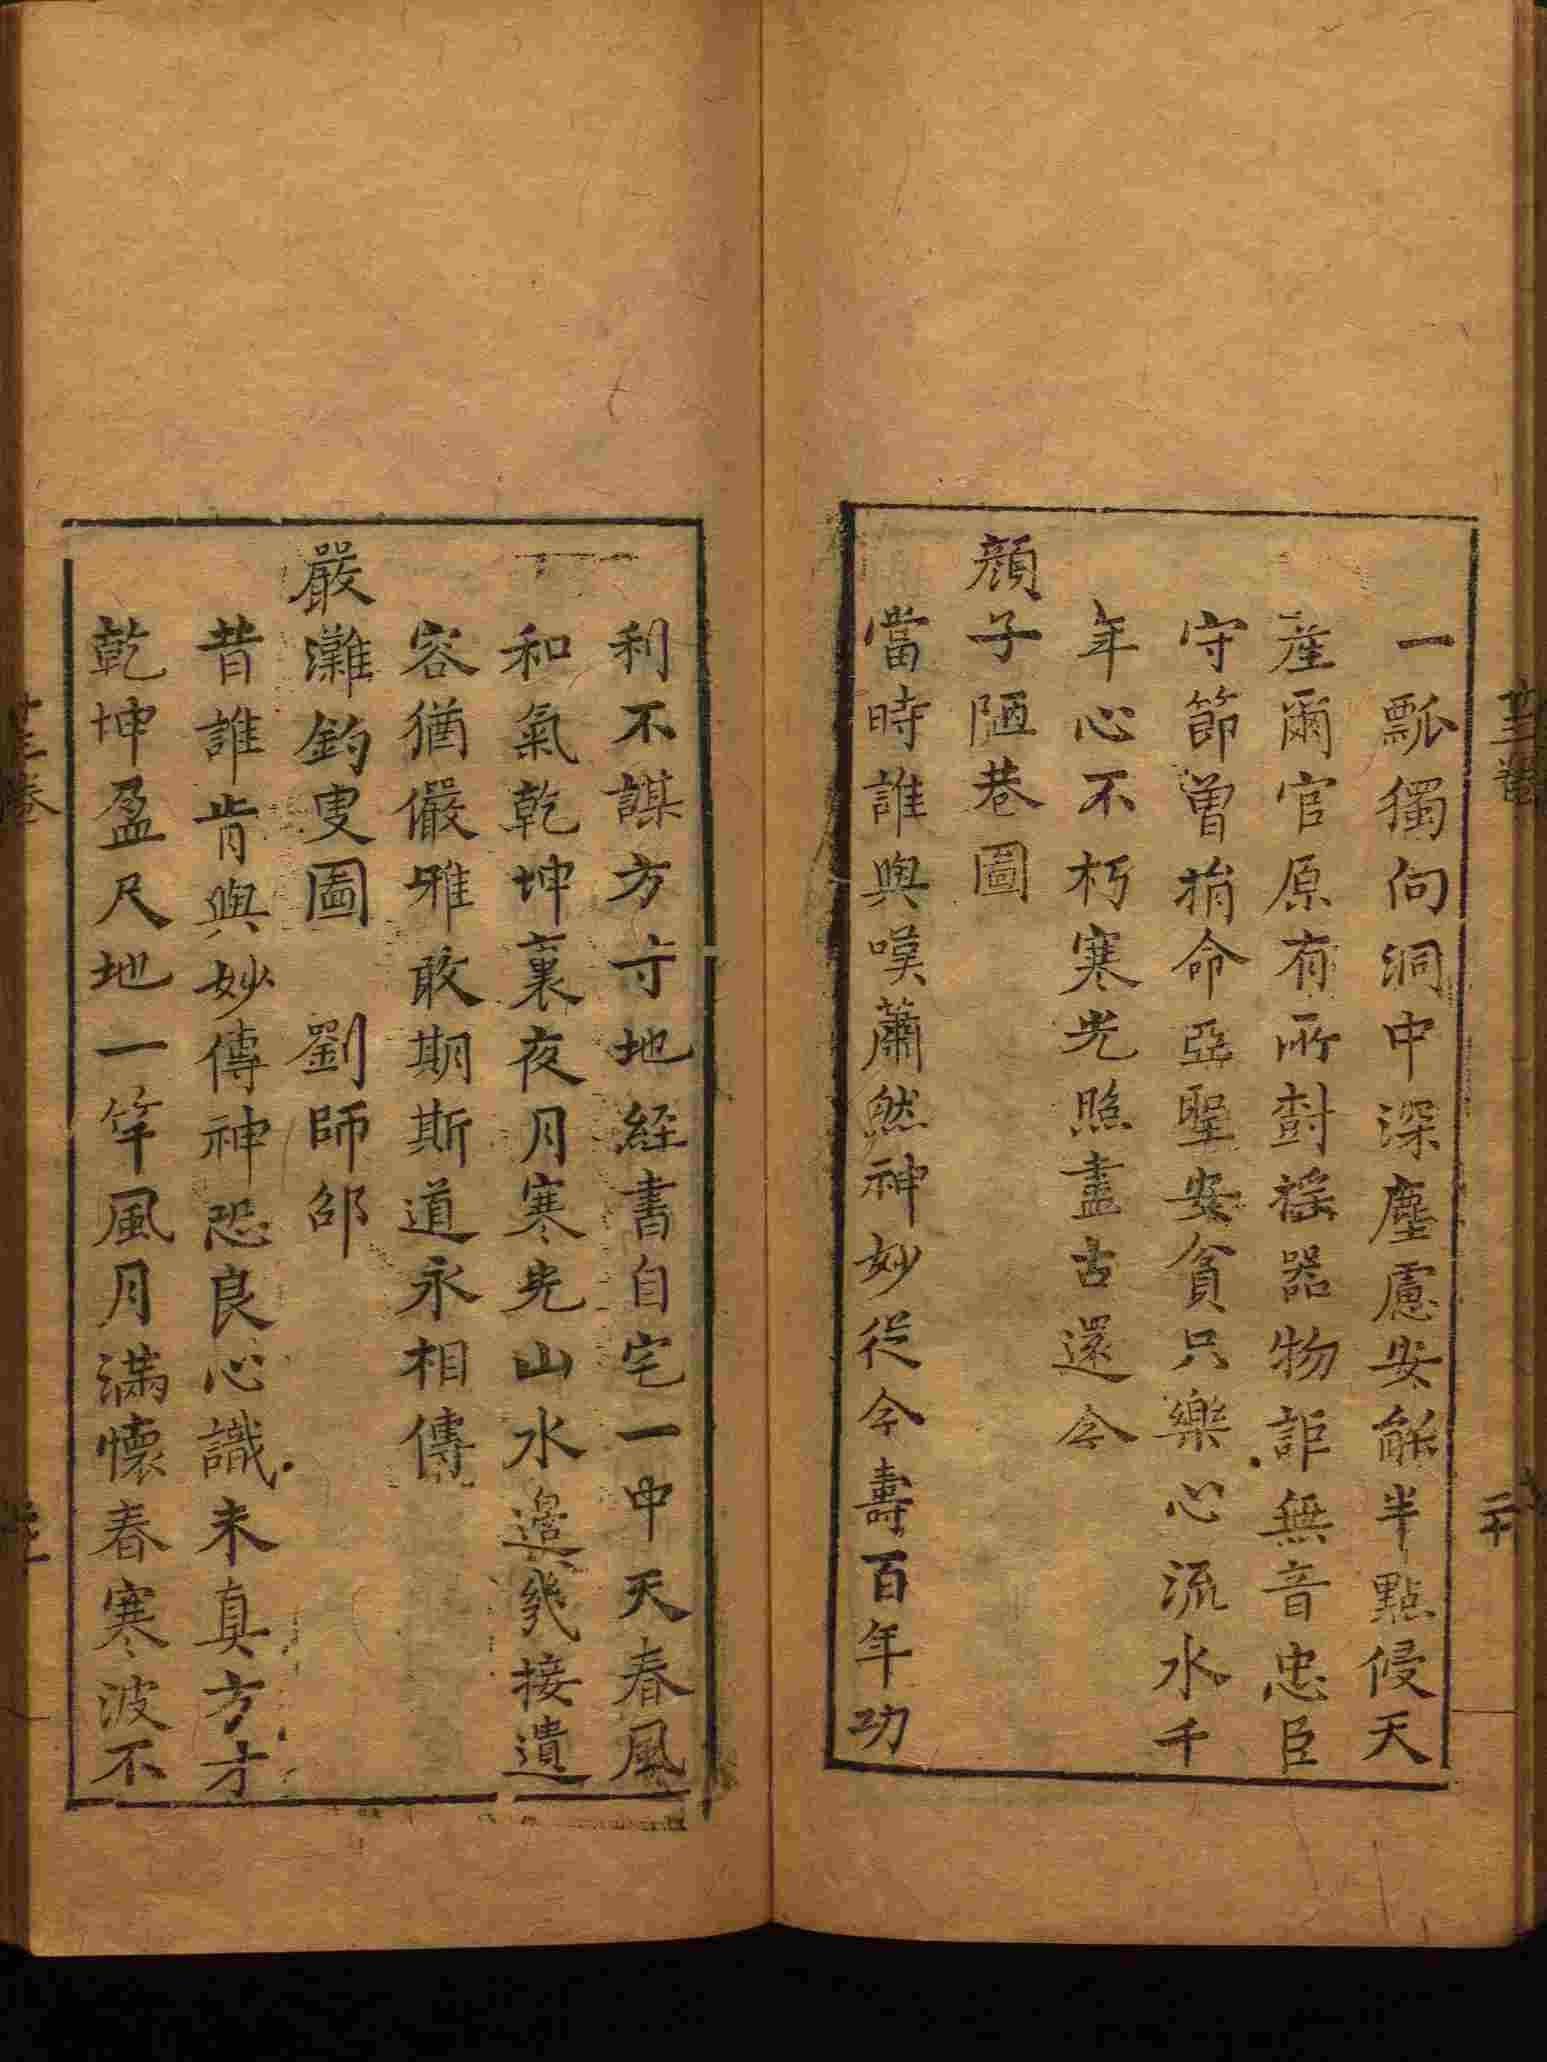 一瓢獨向洞中深塵慮安能半點侵天
產爾官原有所對搖器物詎無音忠臣
守節曾捐命亞聖安貧只樂心流水千
年心不朽寒光照盡古還今
顏子陋巷圖
當時誰與嘆蕭然神妙從今壽百年功
利不謀方寸地經書自宅一中天春風
和氣乾坤裏夜月寒光山水邊幾接遺
容猶儼雅敢期斯道永相傳
嚴灘釣叟圖 劉師邵
昔誰肯與妙傳神恐良心識未真方才
乾坤盈尺地一竿風月滿懷春寒波不
二十